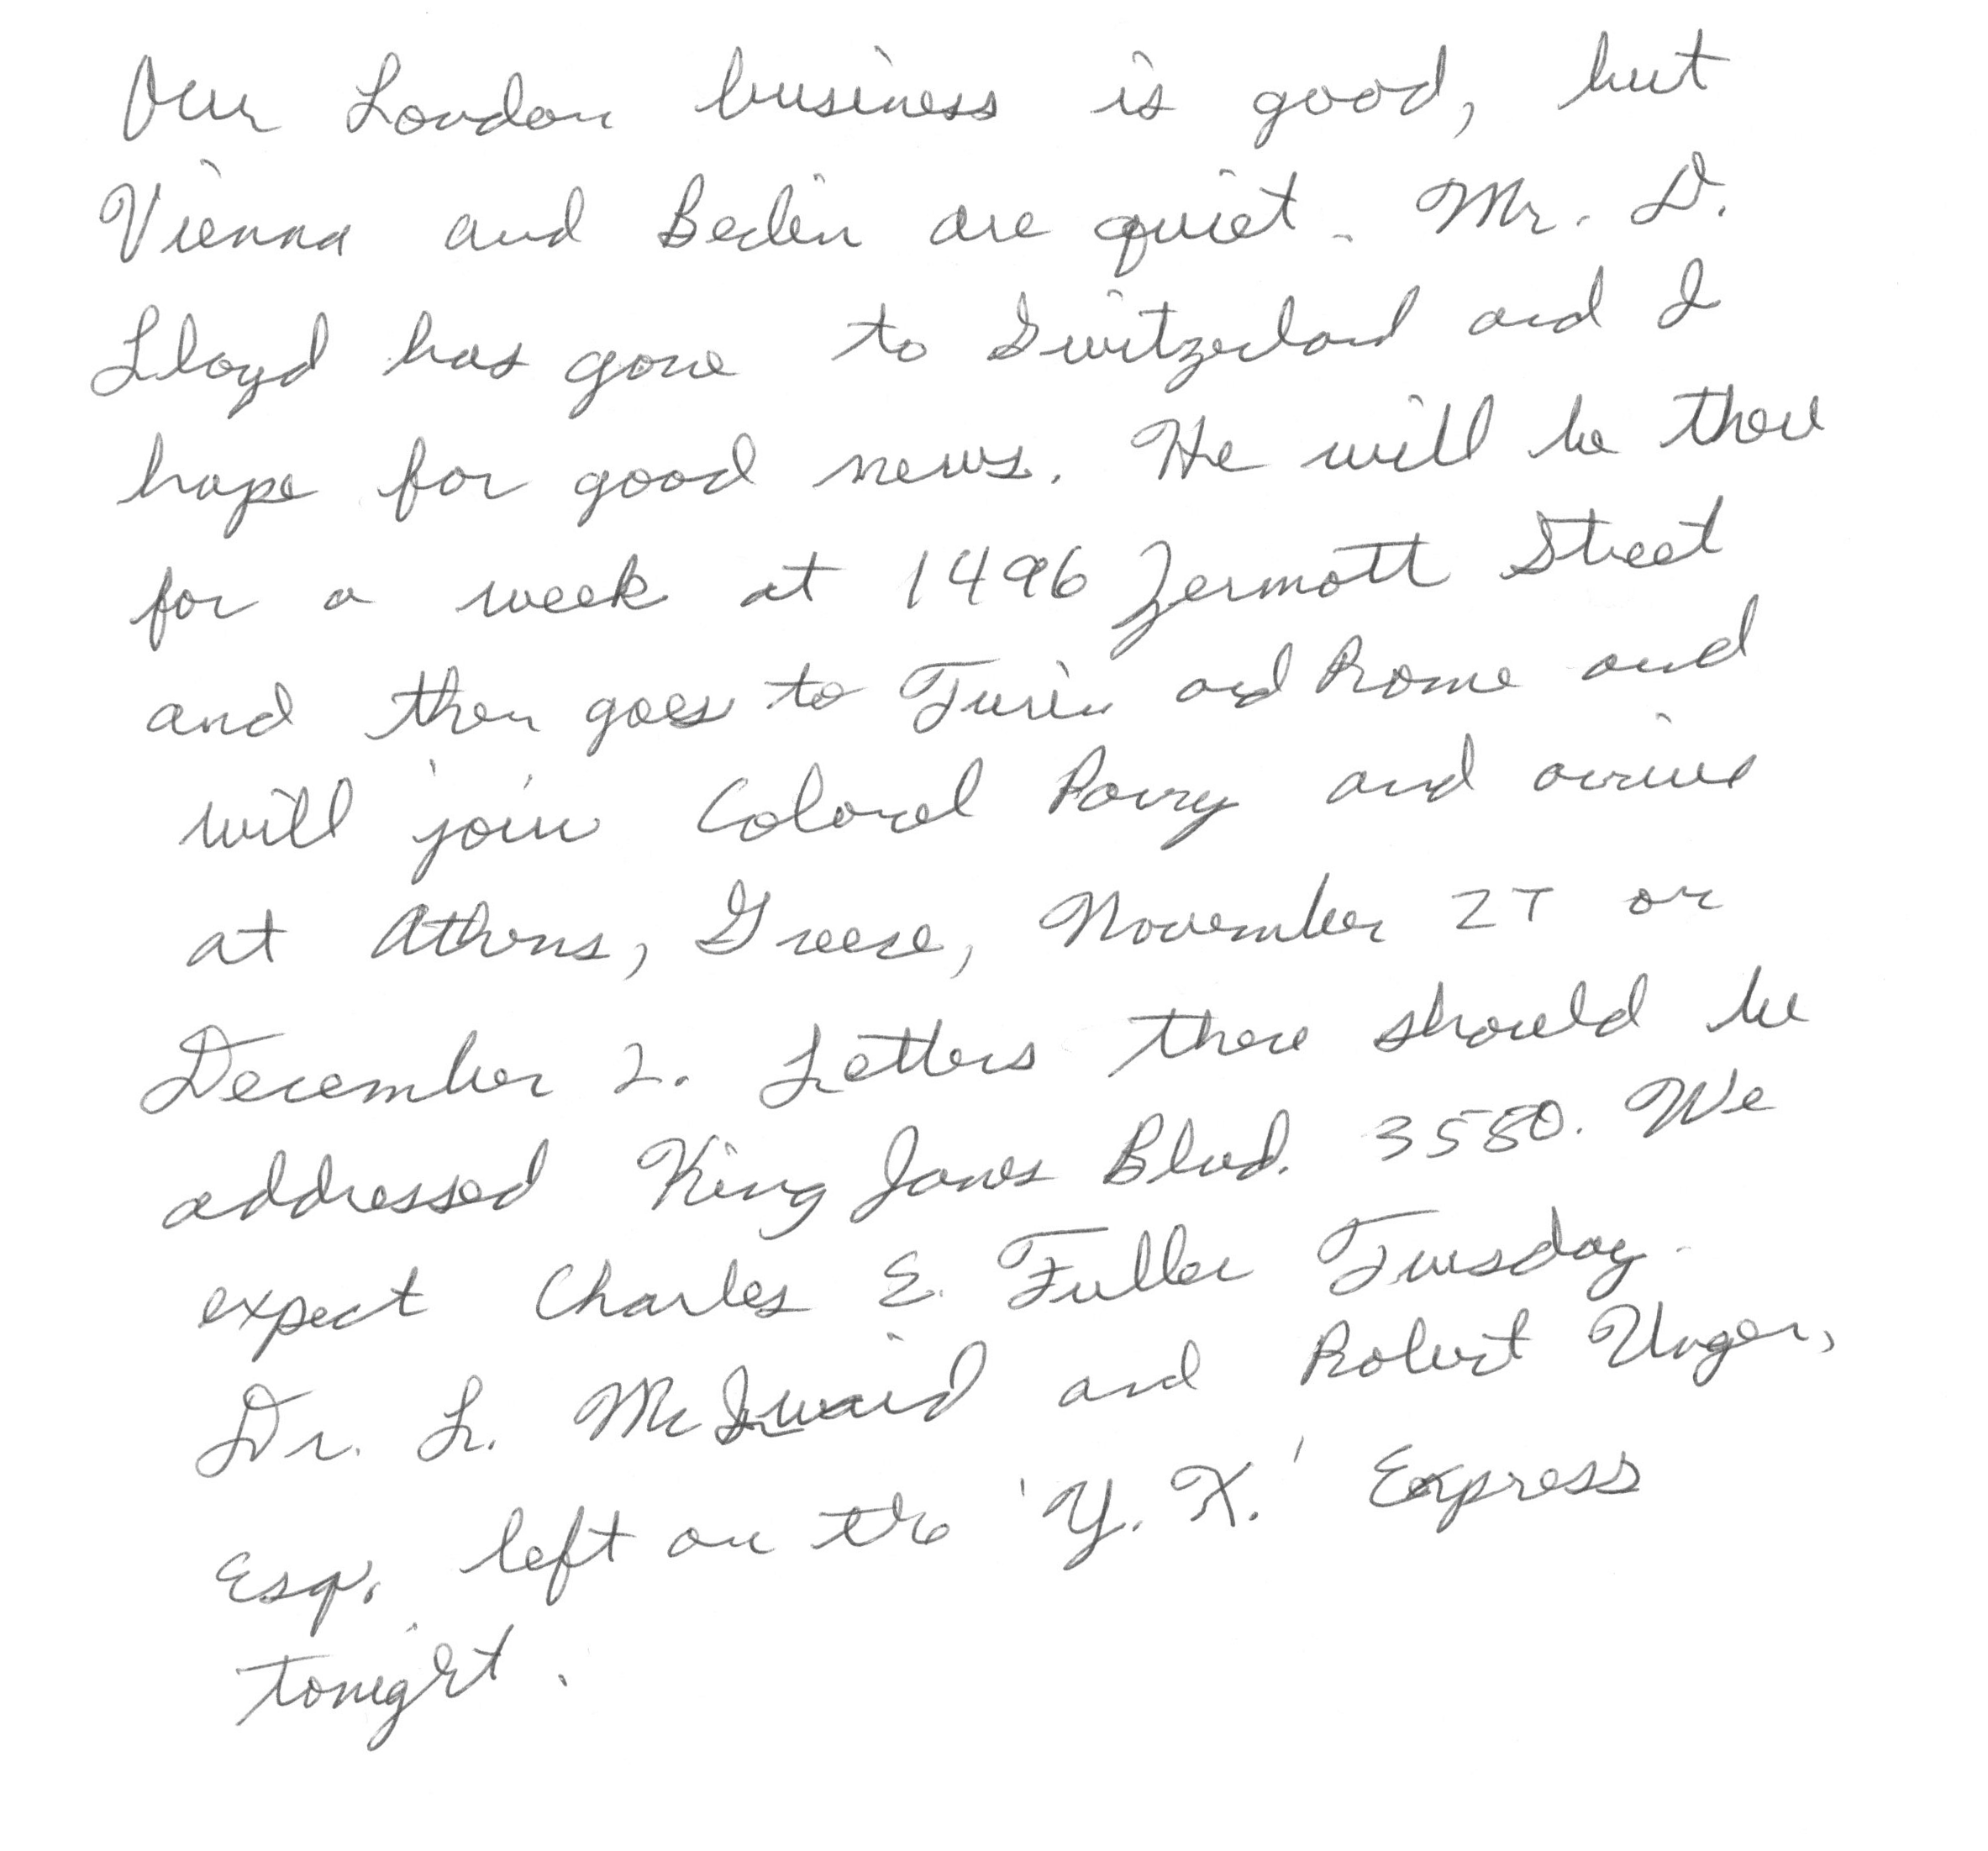 Our London business is good, but
Vienna and Berlin are quiet. Mr. D.
Lloyd has gone to Switzerland and I
hope for good news. He will be there
for a week at 1496 Zermott Street
and then goes to Turin and Rome and
will join Colonel Parry and arrive
at Athens, Greece, November 27 or
December 2. Letters there should be
addressed King James Blvd. 3580. We
expect Charles E. Fuller Tuesday.
Dr. L. McQuaid and Robert Unger,
Esq. left on the 'Y. X.' Express
tonight.